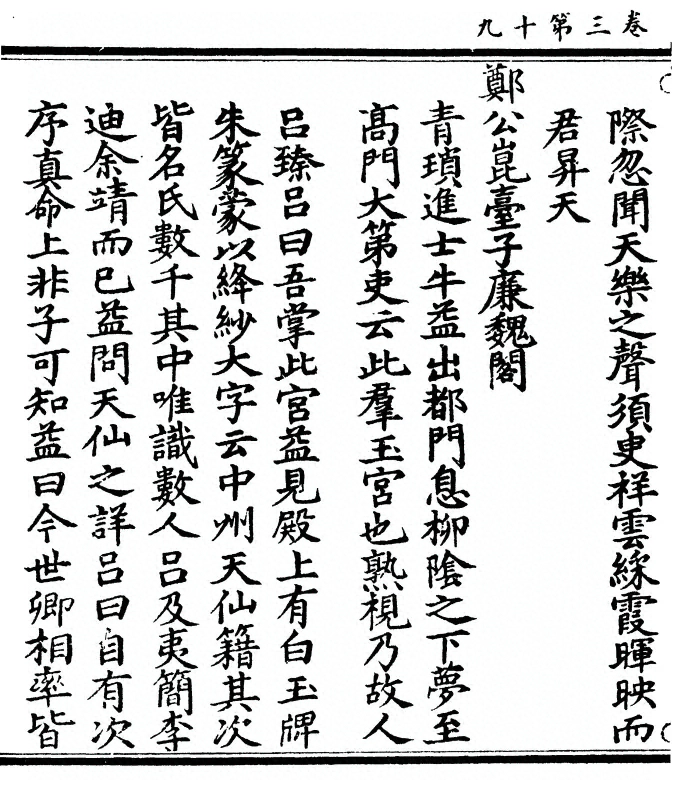 卷三第十九
際忽聞天樂之聲須臾祥雲綵霞暉映而
君昇天
鄭公崑臺子廉魏閣
青瑣進士牛益出都門息柳陰之下夢至
高門大第吏云此羣玉宮也熟視乃故人
呂臻呂曰吾掌此宮益見殿上有白玉牌
朱篆蒙以絳紗大字云中州天仙籍其次
皆名氏數千其中唯識數人呂及夷簡李
迪余靖而已益問天仙之詳呂曰自有次
序真命上非子可知益曰今世卿相率皆